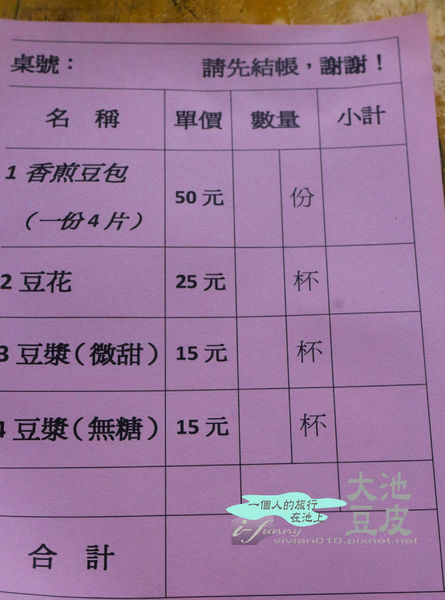 桌號： 請先結帳，謝謝！
名 稱 單價 數量 小計
1 香煎豆包
（一份4片） 50 元 份
2 豆花 25 元 杯
3 豆漿（微甜） 15 元 杯
4 豆漿（無糖） 15 元 杯
合 計
一個人的旅行
在池上
大池
豆皮
i-funny
vivian010.pixnet.net